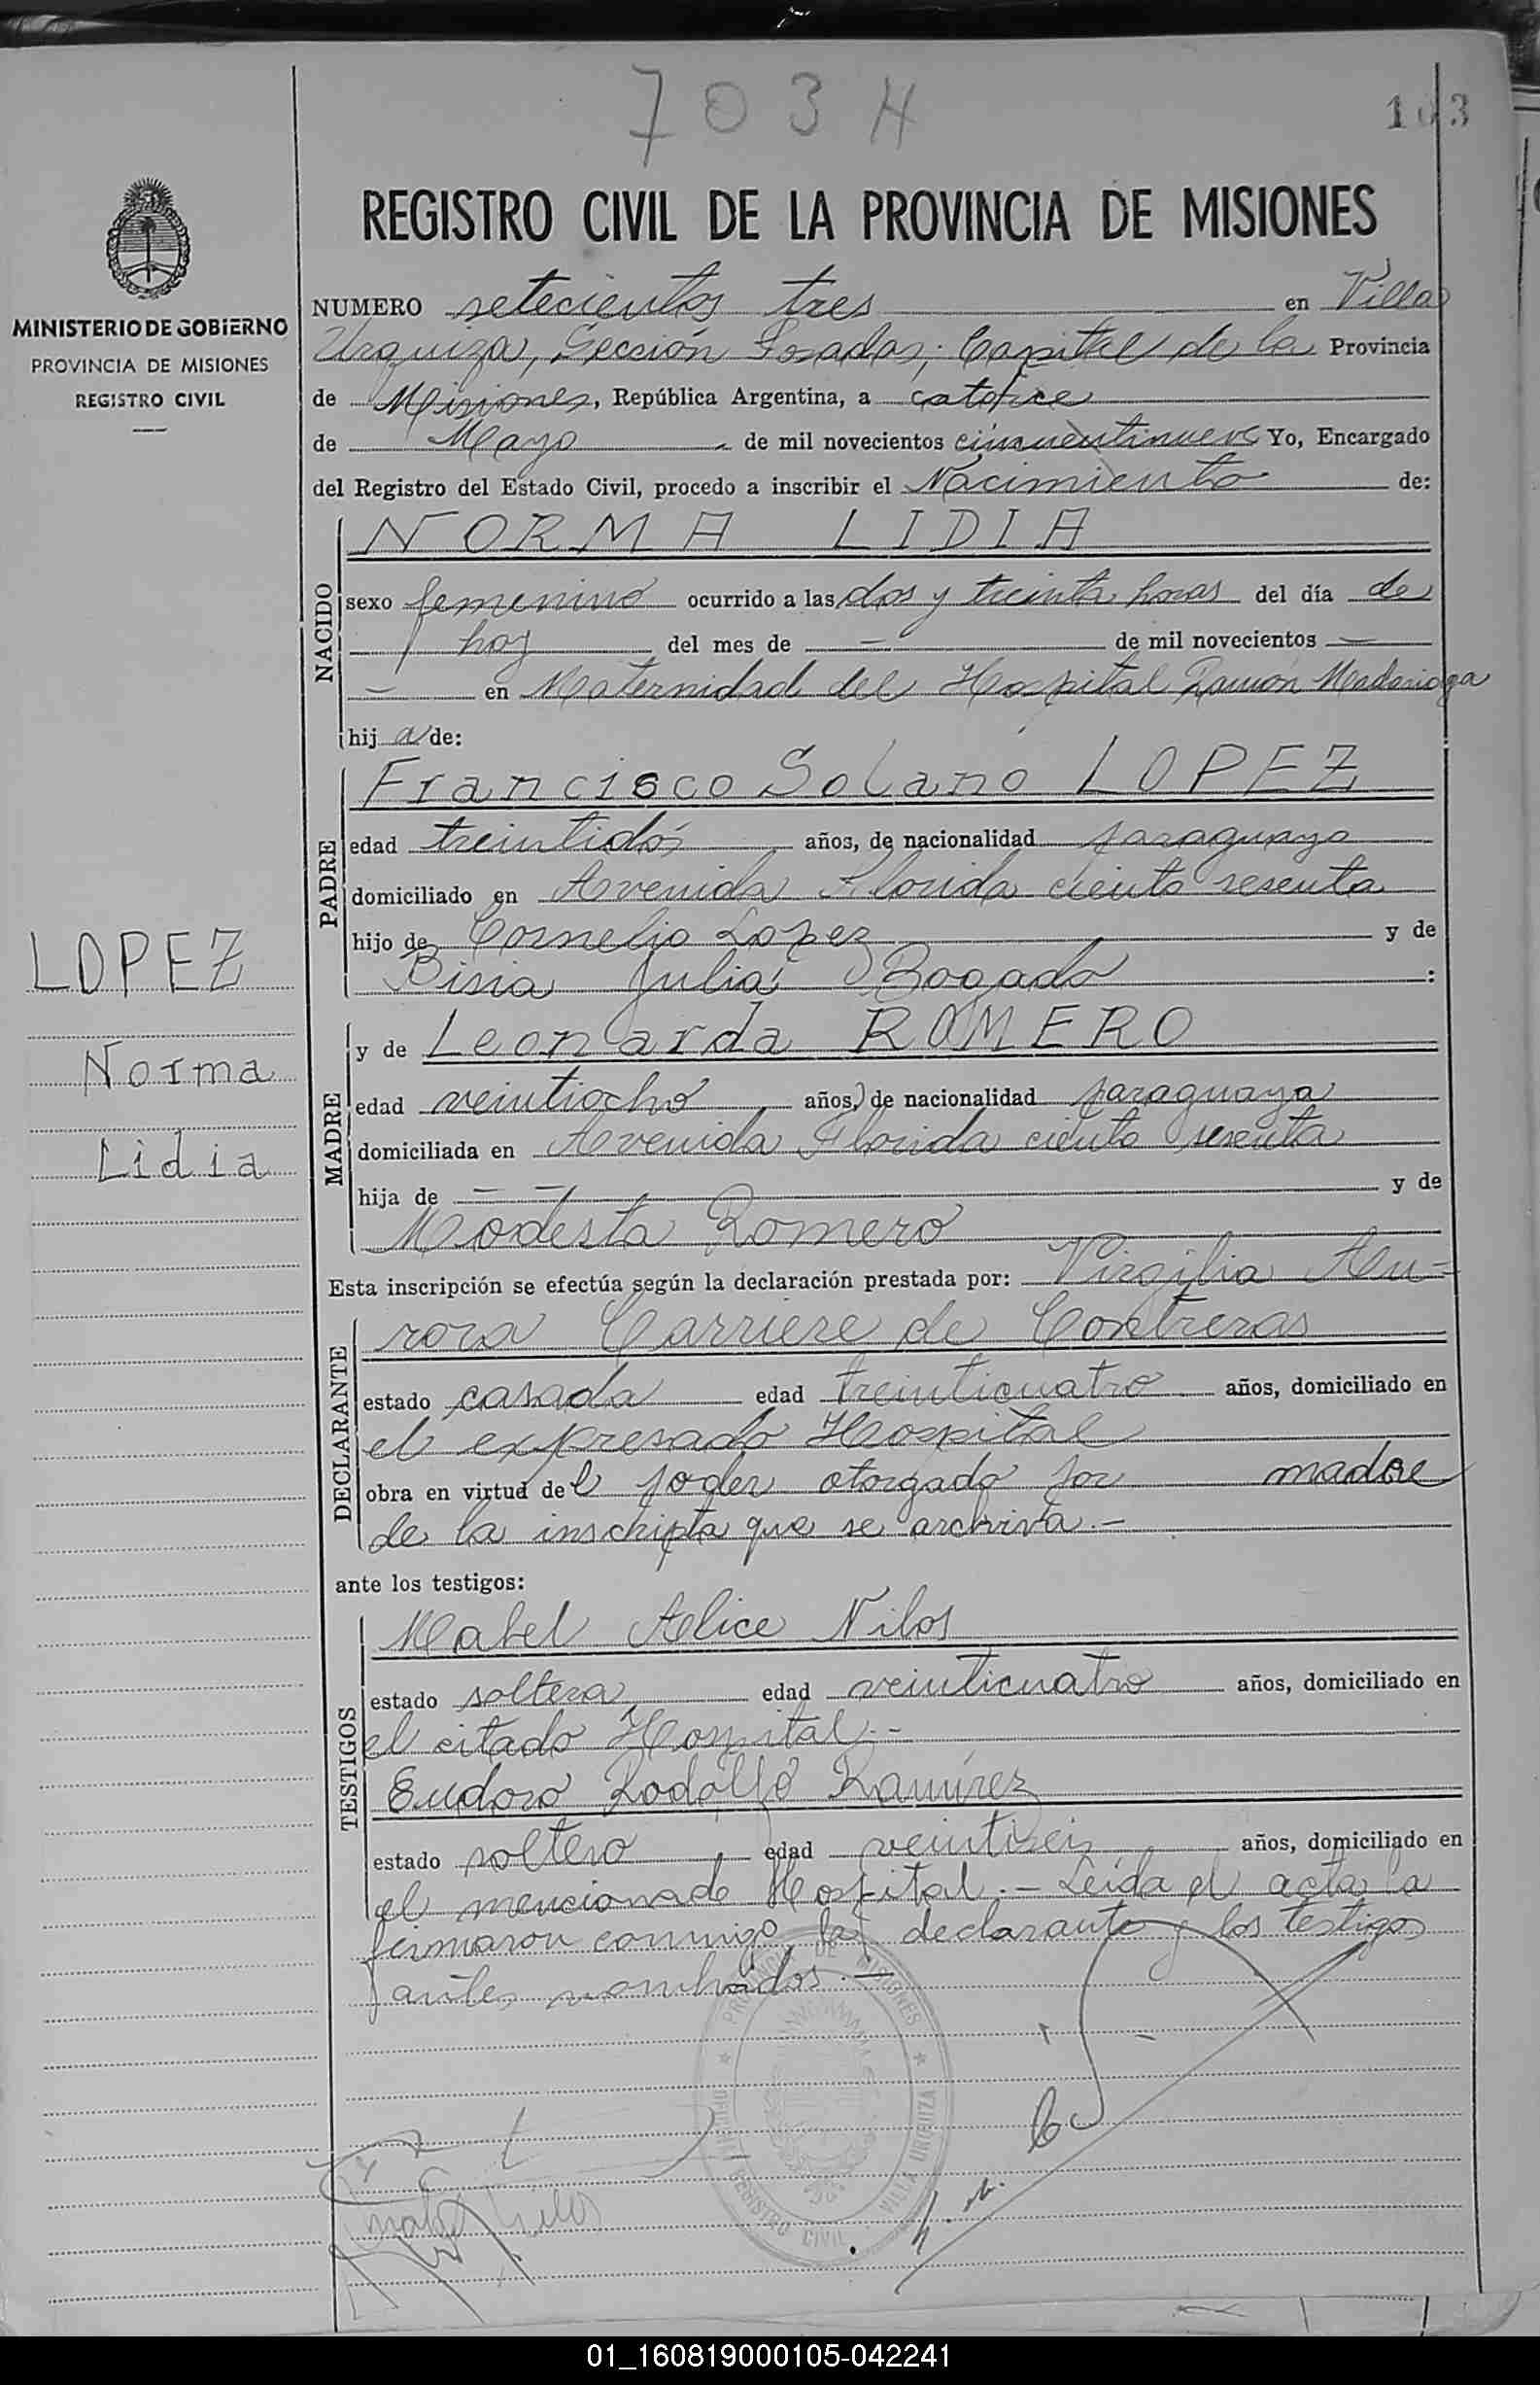 703 H
103
REGISTRO CIVIL DE LA PROVINCIA DE MISIONES
MINISTERIO DE GOBIERNO
PROVINCIA DE MISIONES
REGISTRO CIVIL
NUMERO setecientos tres en Villa
Urquiza, Sección Posadas, Capital de la Provincia
de Misiones, República Argentina, a catorce
de Mayo de mil novecientos cincuentinueve Yo, Encargado
del Registro del Estado Civil, procedo a inscribir el Nacimiento de:
NACIDO
NORMA LIDIA
sexo femenino ocurrido a las dos y treinta horas del día de
hoy del mes de — de mil novecientos —
— en Maternidad del Hospital Ramón Madariaga
hij a de:
PADRE
Francisco Solano LOPEZ
edad treintidós años, de nacionalidad paraguayo
domiciliado en Avenida Florida ciento sesenta
hijo de Cornelio Lopez y de
Julia Bogado :
LOPEZ
Norma
Lidia
MADRE
y de Leonarda ROMERO
edad veintiocho años, de nacionalidad paraguaya
domiciliada en Avenida Florida ciento sesenta
hija de — — y de
Modesta Romero
Esta inscripción se efectúa según la declaración prestada por: Virgilia Au-
DECLARANTE
rora Carriere de Contreras
estado casada edad treinticuatro años, domiciliado en
el expresado Hospital
obra en virtud del poder otorgado por madre
de la inscripta que se archiva.-
ante los testigos:
TESTIGOS
Mabel Alice Nilos
estado soltera edad veinticuatro años, domiciliado en
el citado Hospital.-
Eudoro Rodolfo Ramírez
estado soltero edad veintiseis años, domiciliado en
el mencionado Hospital.- Leída el acta la
firmaron conmigo, la declarante y los testigos
antes nombrados.—
PROVINCIA DE MISIONES
REGISTRO CIVIL VILLA URQUIZA
01_160819000105-042241